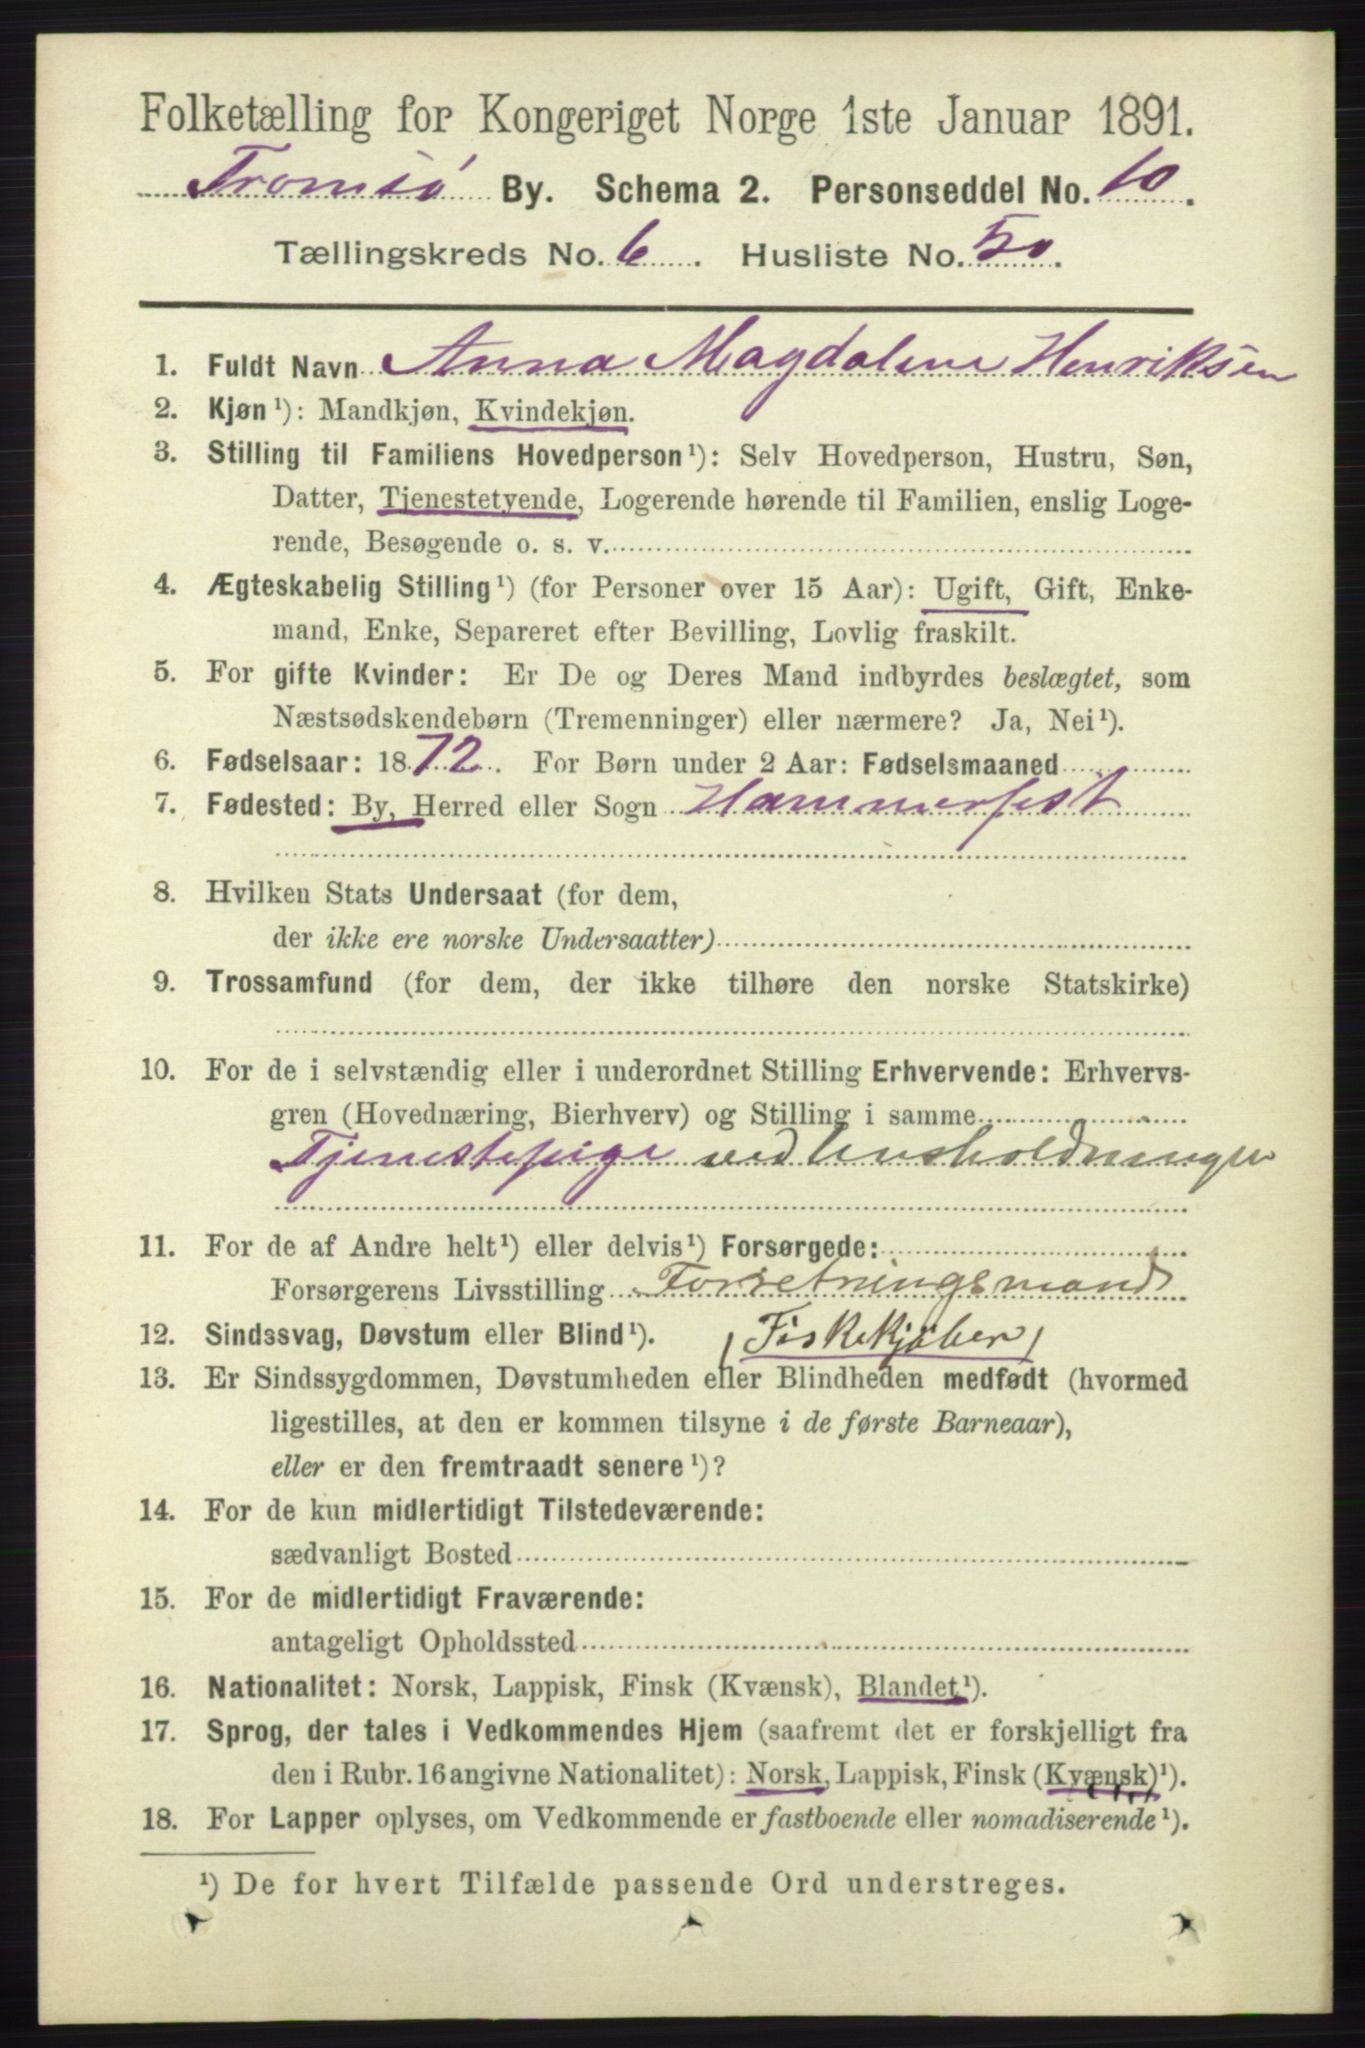 Folketælling for Kongeriget Norge 1ste Januar 1891.
Tromsö By. Schema 2. Personseddel No. 10.
Tællingskreds No. 6. Husliste No. 50.
1. Fuldt Navn Anna Magdalene Henriksen
2. Kjøn¹): Mandkjøn, Kvindekjøn.
3. Stilling til Familiens Hovedperson¹): Selv Hovedperson, Hustru, Søn,
Datter, Tjenestetyende, Logerende hørende til Familien, enslig Loge-
rende, Besøgende o. s. v.
4. Ægteskabelig Stilling¹) (for Personer over 15 Aar): Ugift, Gift, Enke-
mand, Enke, Separeret efter Bevilling, Lovlig fraskilt.
5. For gifte Kvinder: Er De og Deres Mand indbyrdes beslægtet, som
Næstsødskendebørn (Tremenninger) eller nærmere? Ja, Nei¹).
6. Fødselsaar: 1872. For Børn under 2 Aar: Fødselsmaaned
7. Fødested: By, Herred eller Sogn Hammerfest
8. Hvilken Stats Undersaat (for dem,
der ikke ere norske Undersaatter)
9. Trossamfund (for dem, der ikke tilhøre den norske Statskirke)
10. For de i selvstændig eller i underordnet Stilling Erhvervende: Erhvervs-
gren (Hovednæring, Bierhverv) og Stilling i samme
Tjenestepige ved husholdningen
11. For de af Andre helt¹) eller delvis¹) Forsørgede:
Forsørgerens Livsstilling Forretningsmand
12. Sindssvag, Døvstum eller Blind¹). (Fiskekjöber)
13. Er Sindssygdommen, Døvstumheden eller Blindheden medfødt (hvormed
ligestilles, at den er kommen tilsyne i de første Barneaar),
eller er den fremtraadt senere¹)?
14. For de kun midlertidigt Tilstedeværende:
sædvanligt Bosted
15. For de midlertidigt Fraværende:
antageligt Opholdssted
16. Nationalitet: Norsk, Lappisk, Finsk (Kvænsk), Blandet¹).
17. Sprog, der tales i Vedkommendes Hjem (saafremt det er forskjelligt fra
den i Rubr. 16 angivne Nationalitet): Norsk, Lappisk, Finsk (Kvænsk)¹).
18. For Lapper oplyses, om Vedkommende er fastboende eller nomadiserende¹).
¹) De for hvert Tilfælde passende Ord understreges.